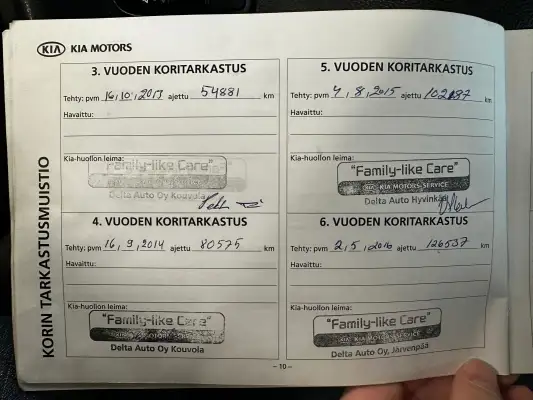 KIA KIA MOTORS
KORIN TARKASTUSMUISTIO
3. VUODEN KORITARKASTUS
Tehty: pvm 16,10,2013 ajettu 54881 km
Havaittu:
Kia-huollon leima:
"Family-like Care"
KIA MOTORS SERVICE
Delta Auto Oy Kouvola
4. VUODEN KORITARKASTUS
Tehty: pvm 16,9,2014 ajettu 80575 km
Havaittu:
Kia-huollon leima:
"Family-like Care"
KIA MOTORS SERVICE
Delta Auto Oy Kouvola
5. VUODEN KORITARKASTUS
Tehty: pvm 7,8,2015 ajettu 102187 km
Havaittu:
Kia-huollon leima:
"Family-like Care"
KIA KIA MOTORS SERVICE
Delta Auto Hyvinkää
6. VUODEN KORITARKASTUS
Tehty: pvm 2,5,2016 ajettu 126537 km
Havaittu:
Kia-huollon leima:
"Family-like Care"
KIA KIA MOTORS SERVICE
Delta Auto Oy, Järvenpää
– 10 –